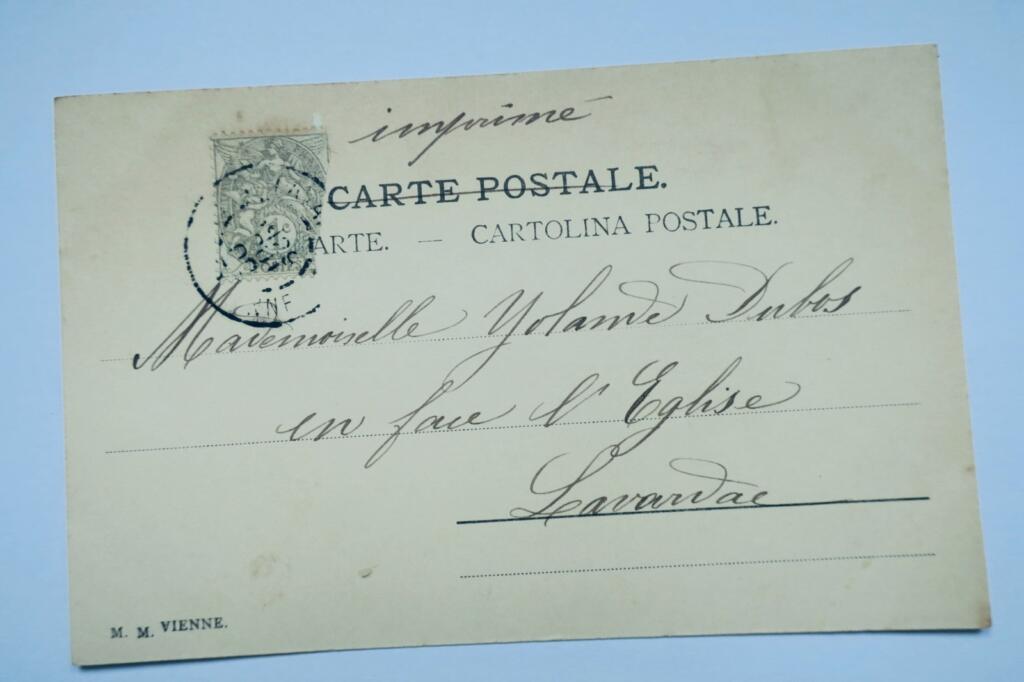 imprimé
CARTE POSTALE.
ARTE. — CARTOLINA POSTALE.
Mademoiselle Yolande Dubos
en face l'Eglise
Lavardac
M. M. VIENNE.